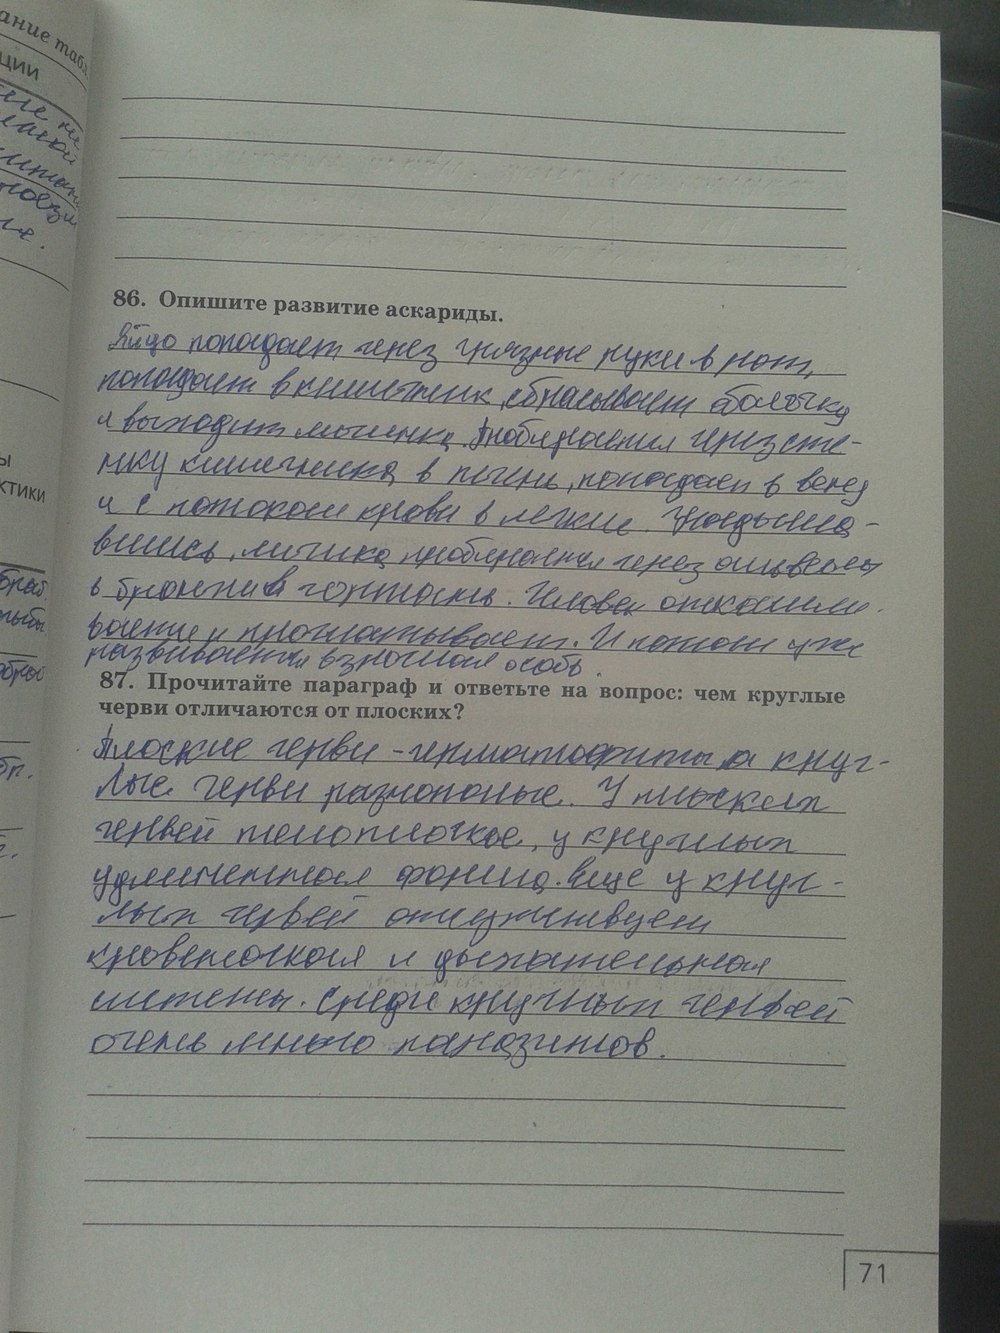 ание табл.
ции
86. Опишите развитие аскариды.
Яйцо попадает через грязные руки в рот,
попадает в кишечник, сбрасывает оболочку
и выходит личинка. Пробирается через сте-
нку кишечника в печень, попадает в вену
и с потоком крови в легкие. Надыша-
вшись, личинка пробирается через альвеолы
в бронхи в гортань. Человек откашли-
вается и проглатывает. И потом уже
развивается взрослая особь.
87. Прочитайте параграф и ответьте на вопрос: чем круглые
черви отличаются от плоских?
Плоские черви - гермафродиты, а круг-
лые черви разнополые. У плоских
червей тело плоское, у круглых
удлиненная форма. Еще у круг-
лых червей отсутствует
кровеносная и дыхательная
системы. Среди круглых червей
очень много паразитов.
ы
ктики
71